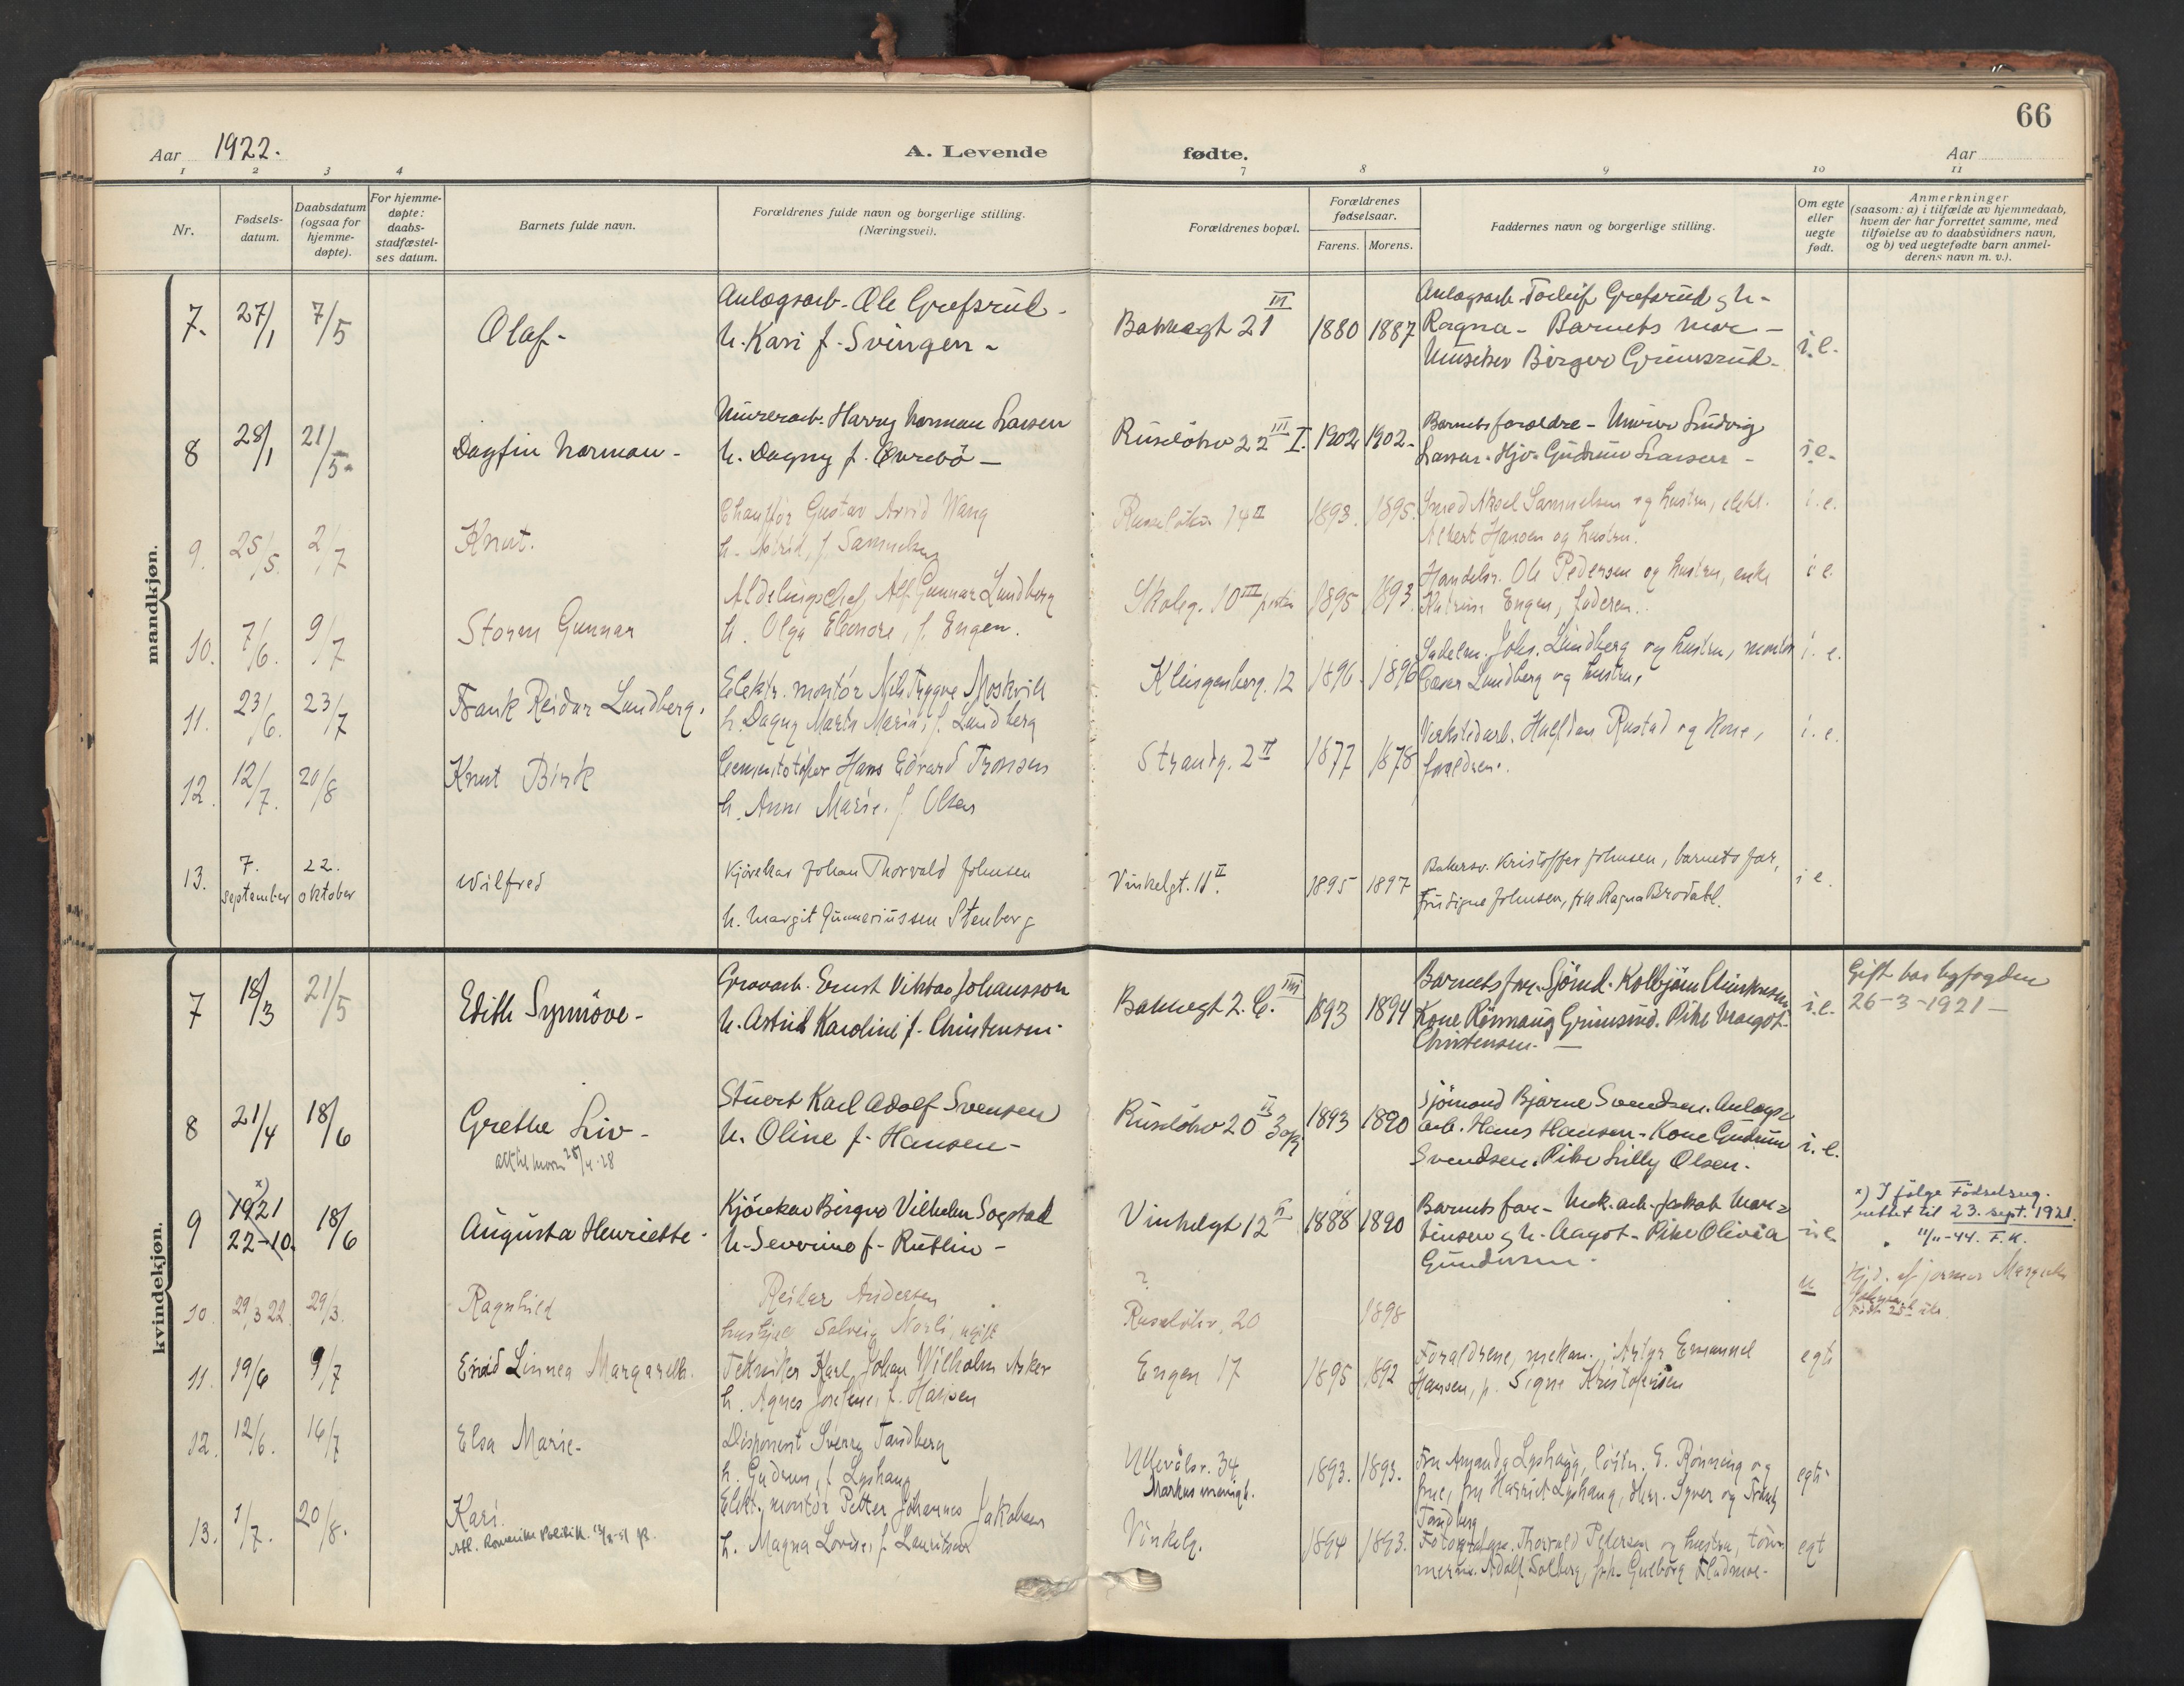 66
Aar 1922. A. Levende fødte. Aar
1 2 3 4 7 8 9 10 11
Nr. Fødsels-datum. Daabsdatum (ogsaa for hjemme-døpte). For hjemme-døpte: daabs-stadfæstel-ses datum. Barnets fulde navn. Forældrenes fulde navn og borgerlige stilling. (Næringsvei). Forældrenes bopæl. Forældrenes fødselsaar. Farens. Morens. Faddernes navn og borgerlige stilling. Om egte eller uegte født. Anmerkninger (saasom: a) i tilfælde av hjemmedaab, hvem der har forrettet samme, med tilføielse av to daabsvidners navn, og b) ved uegtefødte barn anmel-derens navn m. v.).
mandkjøn.
7. 27/1 7/5 Olaf- Anlægsarb. Ole Grefsrud - Bakkegt 21 III 1880 1887 i.e.
h. Kari f. Svingen - Ragna - Barnets mor -
Birger Grimsrud -
8 28/1 21/5 Dagfin Norman - Murerarb. Harry Norman Larsen Ruseløkv 22 III I. 1902 1902 - Barnets forældre - Murer Ludvig i.e.
h. Dagny f. Larsen. Hjv. Gudrun Larsen -
9. 25/5. 2/7 Knut. Chauffør Gustav Arvid Wang Ruseløkv. 14 II 1893. 1895. Smed Aksel Samuelsen og hustru, i.e.
h. Astrid, f. Samuelsen Albert Hansen og hustru.
10. 7/6. 9/7 Storm Gunnar Afdelingschef Alf Gunnar Lundberg Skoleg. 10 III 1895 1893. Handelsr. Ole Pedersen og hustru, enke i e.
h. Olga Eleonore, f. Engen. Katrine Engen, faderen.
11. 23/6. 23/7 Frank Reidar Lundberg. Elektr. montør Nils Trygve Moskvil Klingenberg. 12 1896. 1896 Sadelm. Johs. Lundberg og hustru, montør i. e.
h. Dagny Marta Maria, f. Lundberg Lundberg og hustru,
12. 12/7. 20/8 Knut Birk Hans Edvard Tronsen Strandg. 2 II 1877 1878 Verkstedarb. Halfdan Rustad og Kone, i. e.
h. Anne Marie, f. Olsen foraldrene.
13. 7. september 22. oktober Wilfred Kjørekar Johan Thorvald Johnsen Vinkelgt. 11 II. 1895 1897 Bakersv. Kristoffer Johnsen, barnets far, i e.
h. Margit Gunneriussen Stenberg Fru Signe Johnsen, frk Ragna Brodahl.
kvindekjøn.
7 18/3 21/5 Edith Synnöve - Gravarb. Ernst Viktor Johansson Bakkegt 2. C. III 1893 1894 Barnets far. Sjömd. Kolbjörn i.e. Gift hos byfogden
h. Astrid Karoline f. Christensen. Kone Rönnaug Grimsrud. Pike Margot 26-3-1921 -
Christensen. -
8 21/4 18/6 Grethe Liv - Stuert Karl Adolf Svensen Ruseløkv 20 II 1893 1890 Sjömand Bjarne Svendsen. Anlægs-
28/4-28 h. Oline f. Hansen - arb. Hans Hansen. Kone Gudrun i. e.
Svendsen. Pike Lilly Olsen.
9 x) 1921 22-10. 18/6 Augusta Henriette - Kjörekar Birger Vilhelm Sogstad Vinkelgt 12 II 1888 1890 Barnets far - Mek. arb. Jakob Mar- i.e. x) I følge Fødselsreg.
h. Severine f. Rutlin - tinsen og h. Aagot. Pike Olivia rettet til 23. sept. 1921.
Gundersen. 11/11-44. F.K.
10 29/3 22 29/3. Ragnhild Reidar Andersen ? u
hushjelp Solveig Norli, ugift Ruseløkv. 20 1898
11. 19/6 9/7 Linnea Margareth. Tekniker Karl Johan Wilhelm Asker Engen 17 1895 1892 Foraldrene, mekan. Artur Emanuel egte
h. Agnes Josefine, f. Hansen Hansen, p. Signe Kristofersen
12. 12/6. 16/7 Elsa Marie - Disponent Sverre Tandberg Ullevålsv. 34 1893. 1893. Fru Amanda Lyshaug, E. Rønning og egte
h. Gudrun, f. Lyshaug Markus menigh. frue, fru Harriet Lyshaug, Herr. Syver og
Tandberg
13. 1/7. 20/8. Kari. Elekt. montør Petter Johannes Jakobsen Vinkelg. 1894 1893. Fotograf Thorvald Pedersen og hustru, tøm- egt
Att. Romerike Politik. h. Magna Lovise, f. Lauritsen mermm. Adolf Solberg, frk. Gulborg